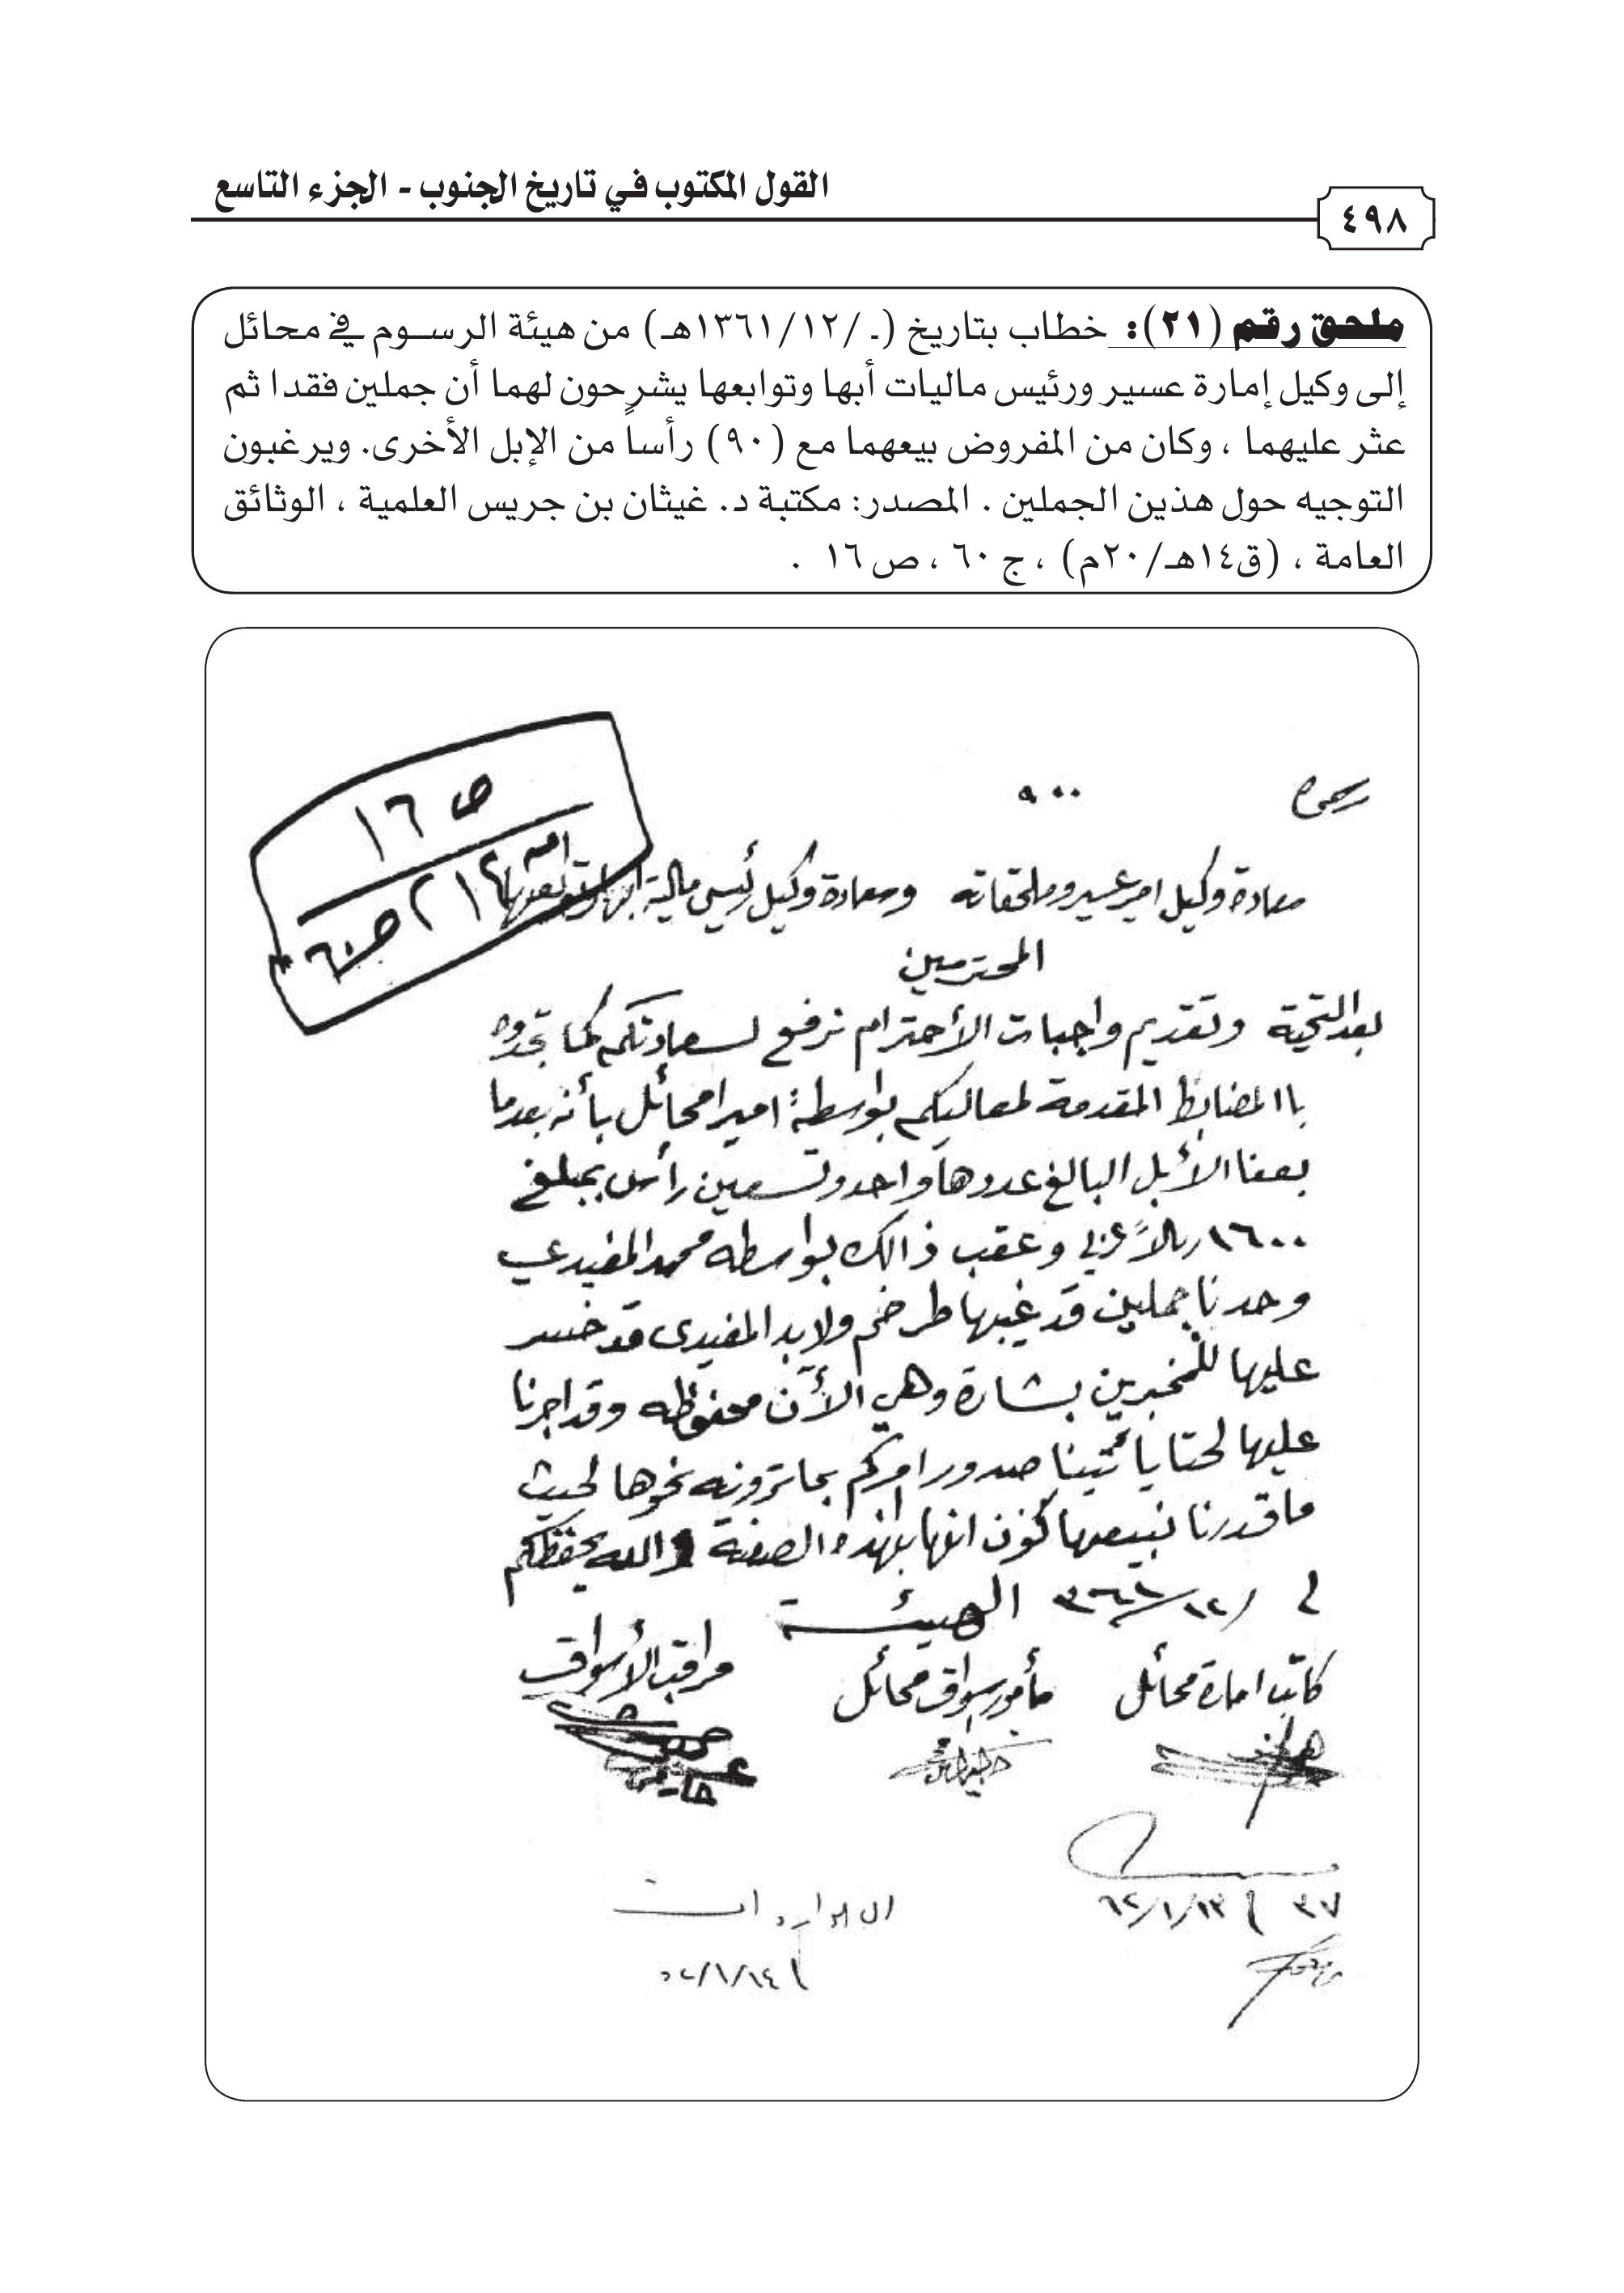 القول المكتوب في تاريخ الجنوب - الجزء التاسع
٤٩٨
ملحق رقم (٢١): خطاب بتاريخ (ـ /١٣٦١/١٢هـ) من هيئة الرسوم في محائل
إلى وكيل إمارة عسير ورئيس ماليات أبها وتوابعها يشرحون لهما أن جملين فقدا ثم
عثر عليهما ، وكان من المفروض بيعهما مع (٩٠) رأساً من الإبل الأخرى. ويرغبون
التوجيه حول هذين الجملين . المصدر: مكتبة د. غيثان بن جريس العلمية ، الوثائق
العامة ، (ق١٤هـ/٢٠م) ، ج ٦٠ ، ص ١٦ .
ص ١٦
٩٠٠
سعادة وكيل امير عسير وملحقاته وسعادة وكيل رئيس مالية ابها وتوابعها
المحترمين
بعد التحية وتقديم واجبات الأحترام نرفع لسعادتكم كما تجدوه
باالمضابط المقدمة لمعاليكم بواسطة امير امحائل بأنه بعدما
بعنا الأبل البالغ عددها واحد وتسعين رأس بمبلغ
١٦٠٠ ريالاً عربي وعقب ذالك بواسطه محمد المفيدي
وجدنا جملين قد غيبها طرخم ولابد المفيدى قد خسر
عليها للمخبرين بشارة وهي الأن محفوظه وقد اجرنا
عليها لحتا يأتينا صدور امركم بما ترونه نحوها لحيث
ماقدرنا نبيعها كون انها بهذه الصفة والله يحفظكم
في / ١٢/ ٣٦١ الهيئة
كاتب امارة محائل مأمور سواق محائل مراقب الأسواق
٣٧ ٦٢/١/١٣
الايرادات